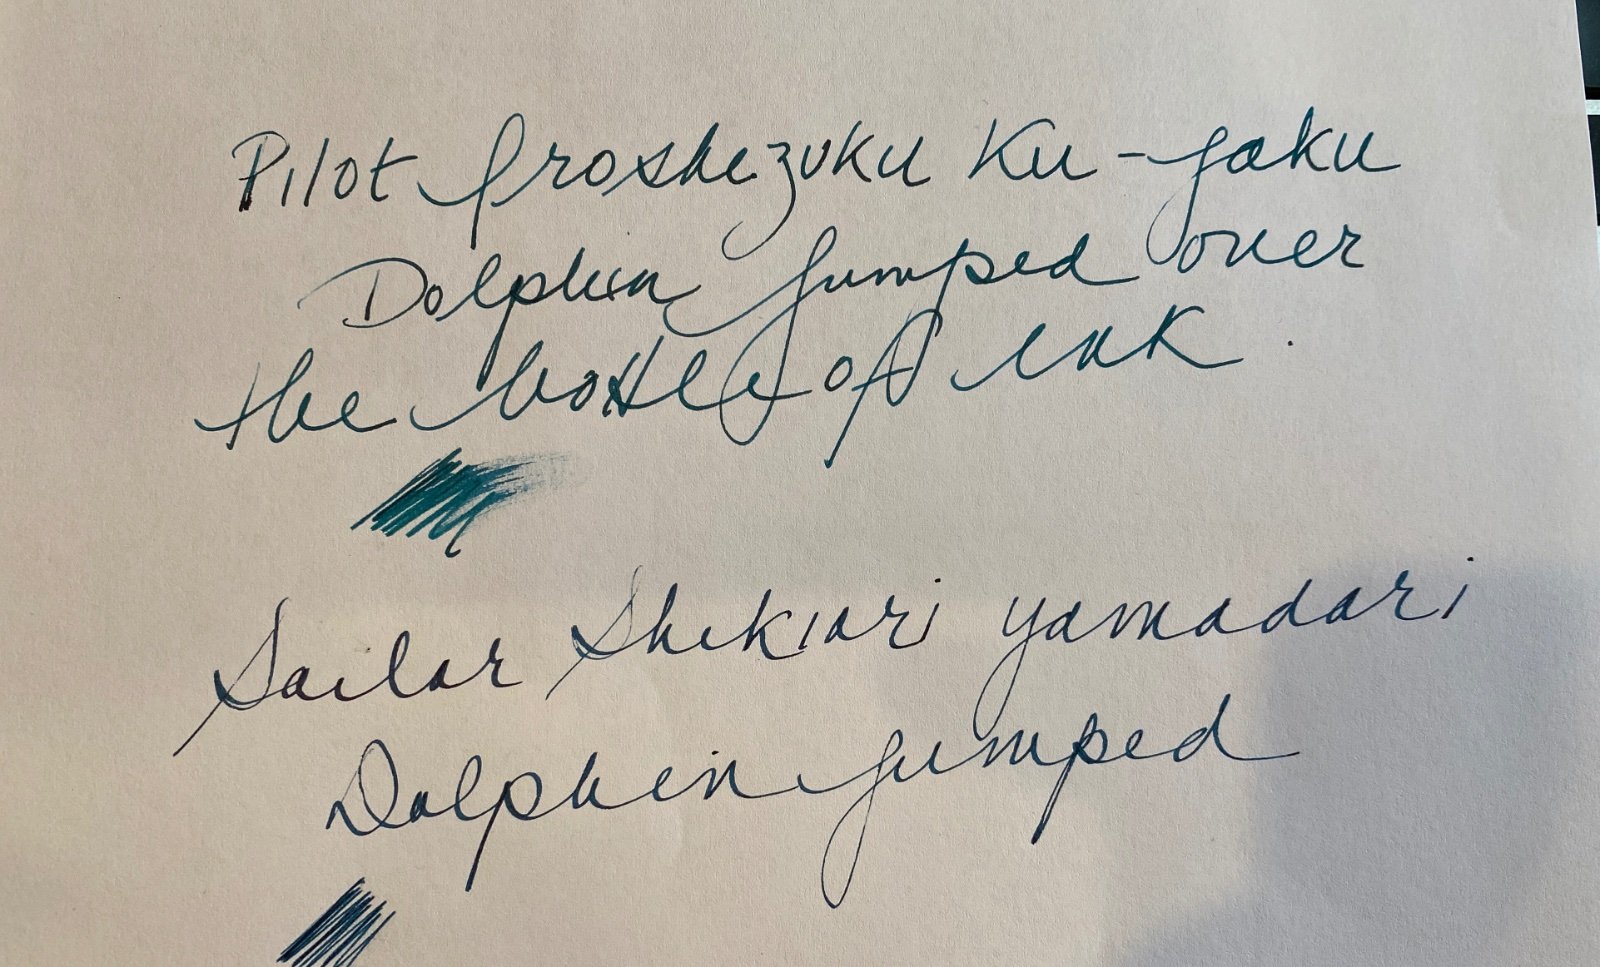 Pilot Iroshizuku Ku-jaku
Dolphin jumped over
the bottle of ink.
Sailor Shikiori yamadori
Dolphin jumped